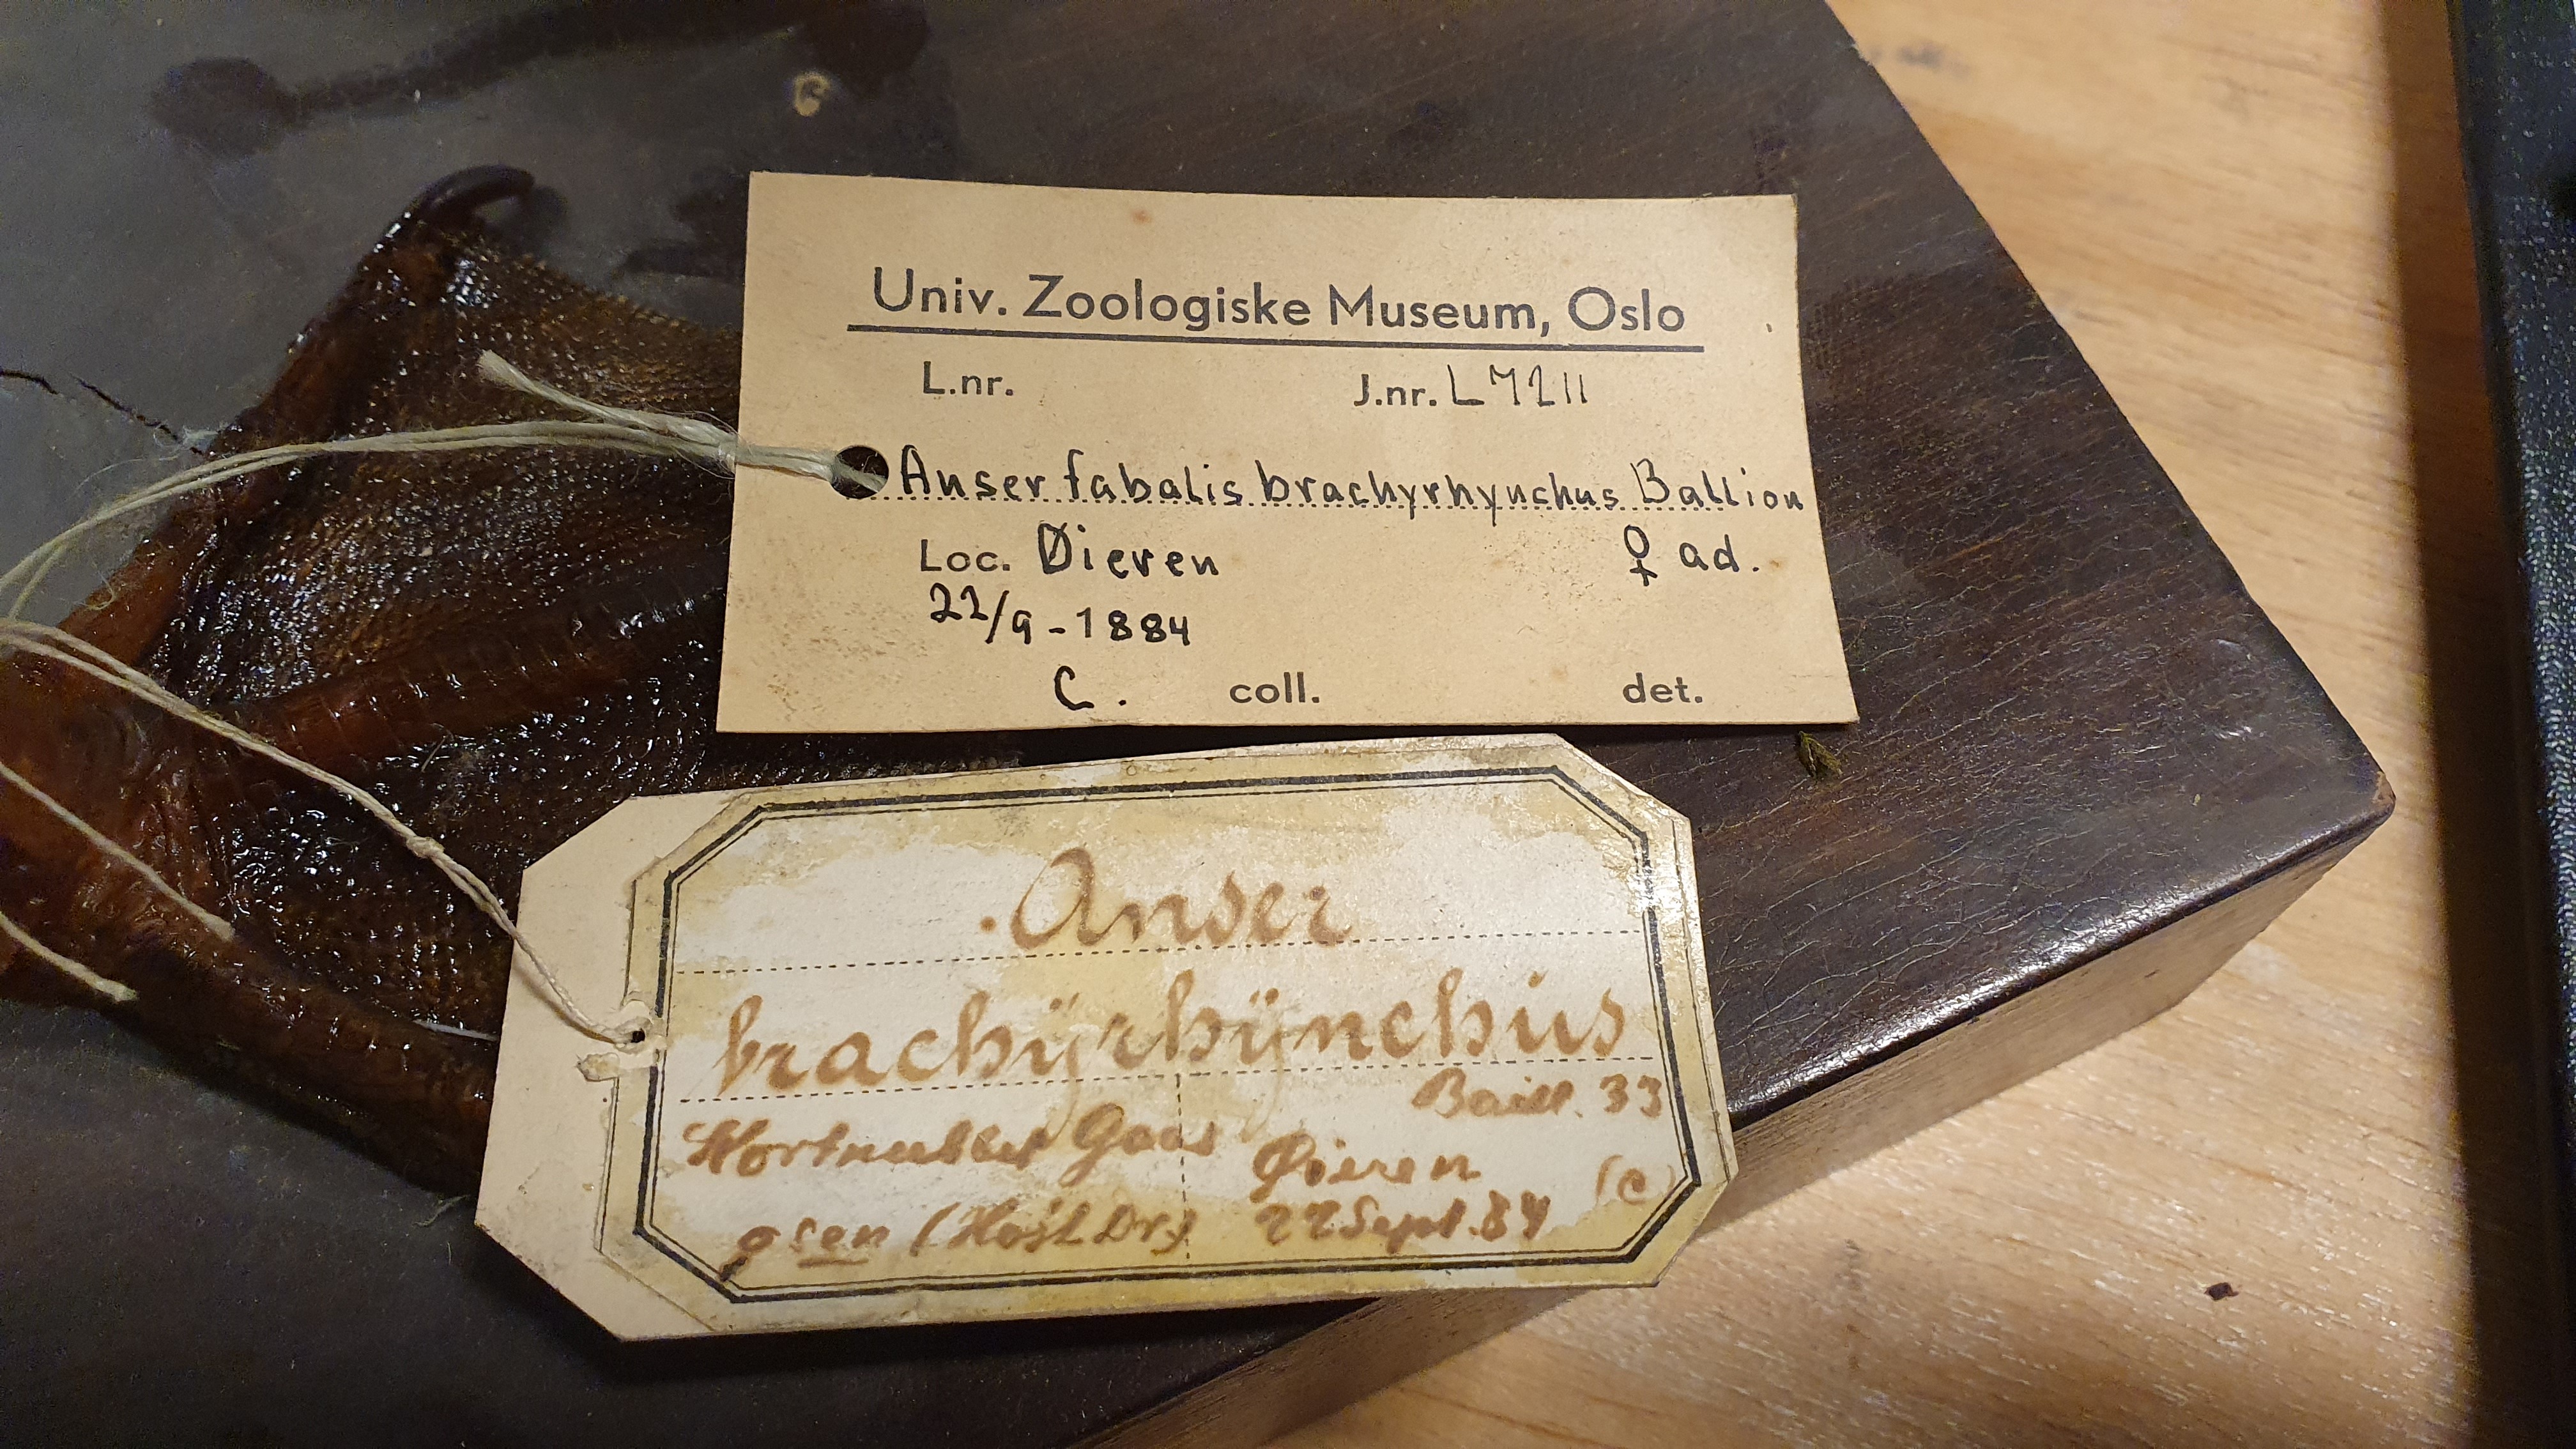 Univ. Zoologiske Museum, Oslo
L.nr. J.nr. L 7211
Anser fabalis brachyrhynchus Ballion
Loc. Øieren ♀ ad.
22/9-1884
C. coll. det.
Anser
brachÿrhÿnchus
Baill. 33
Kortnæbbet Gaas Øieren (C)
♀ sen (Høst Dr.) 22 Sept. 84